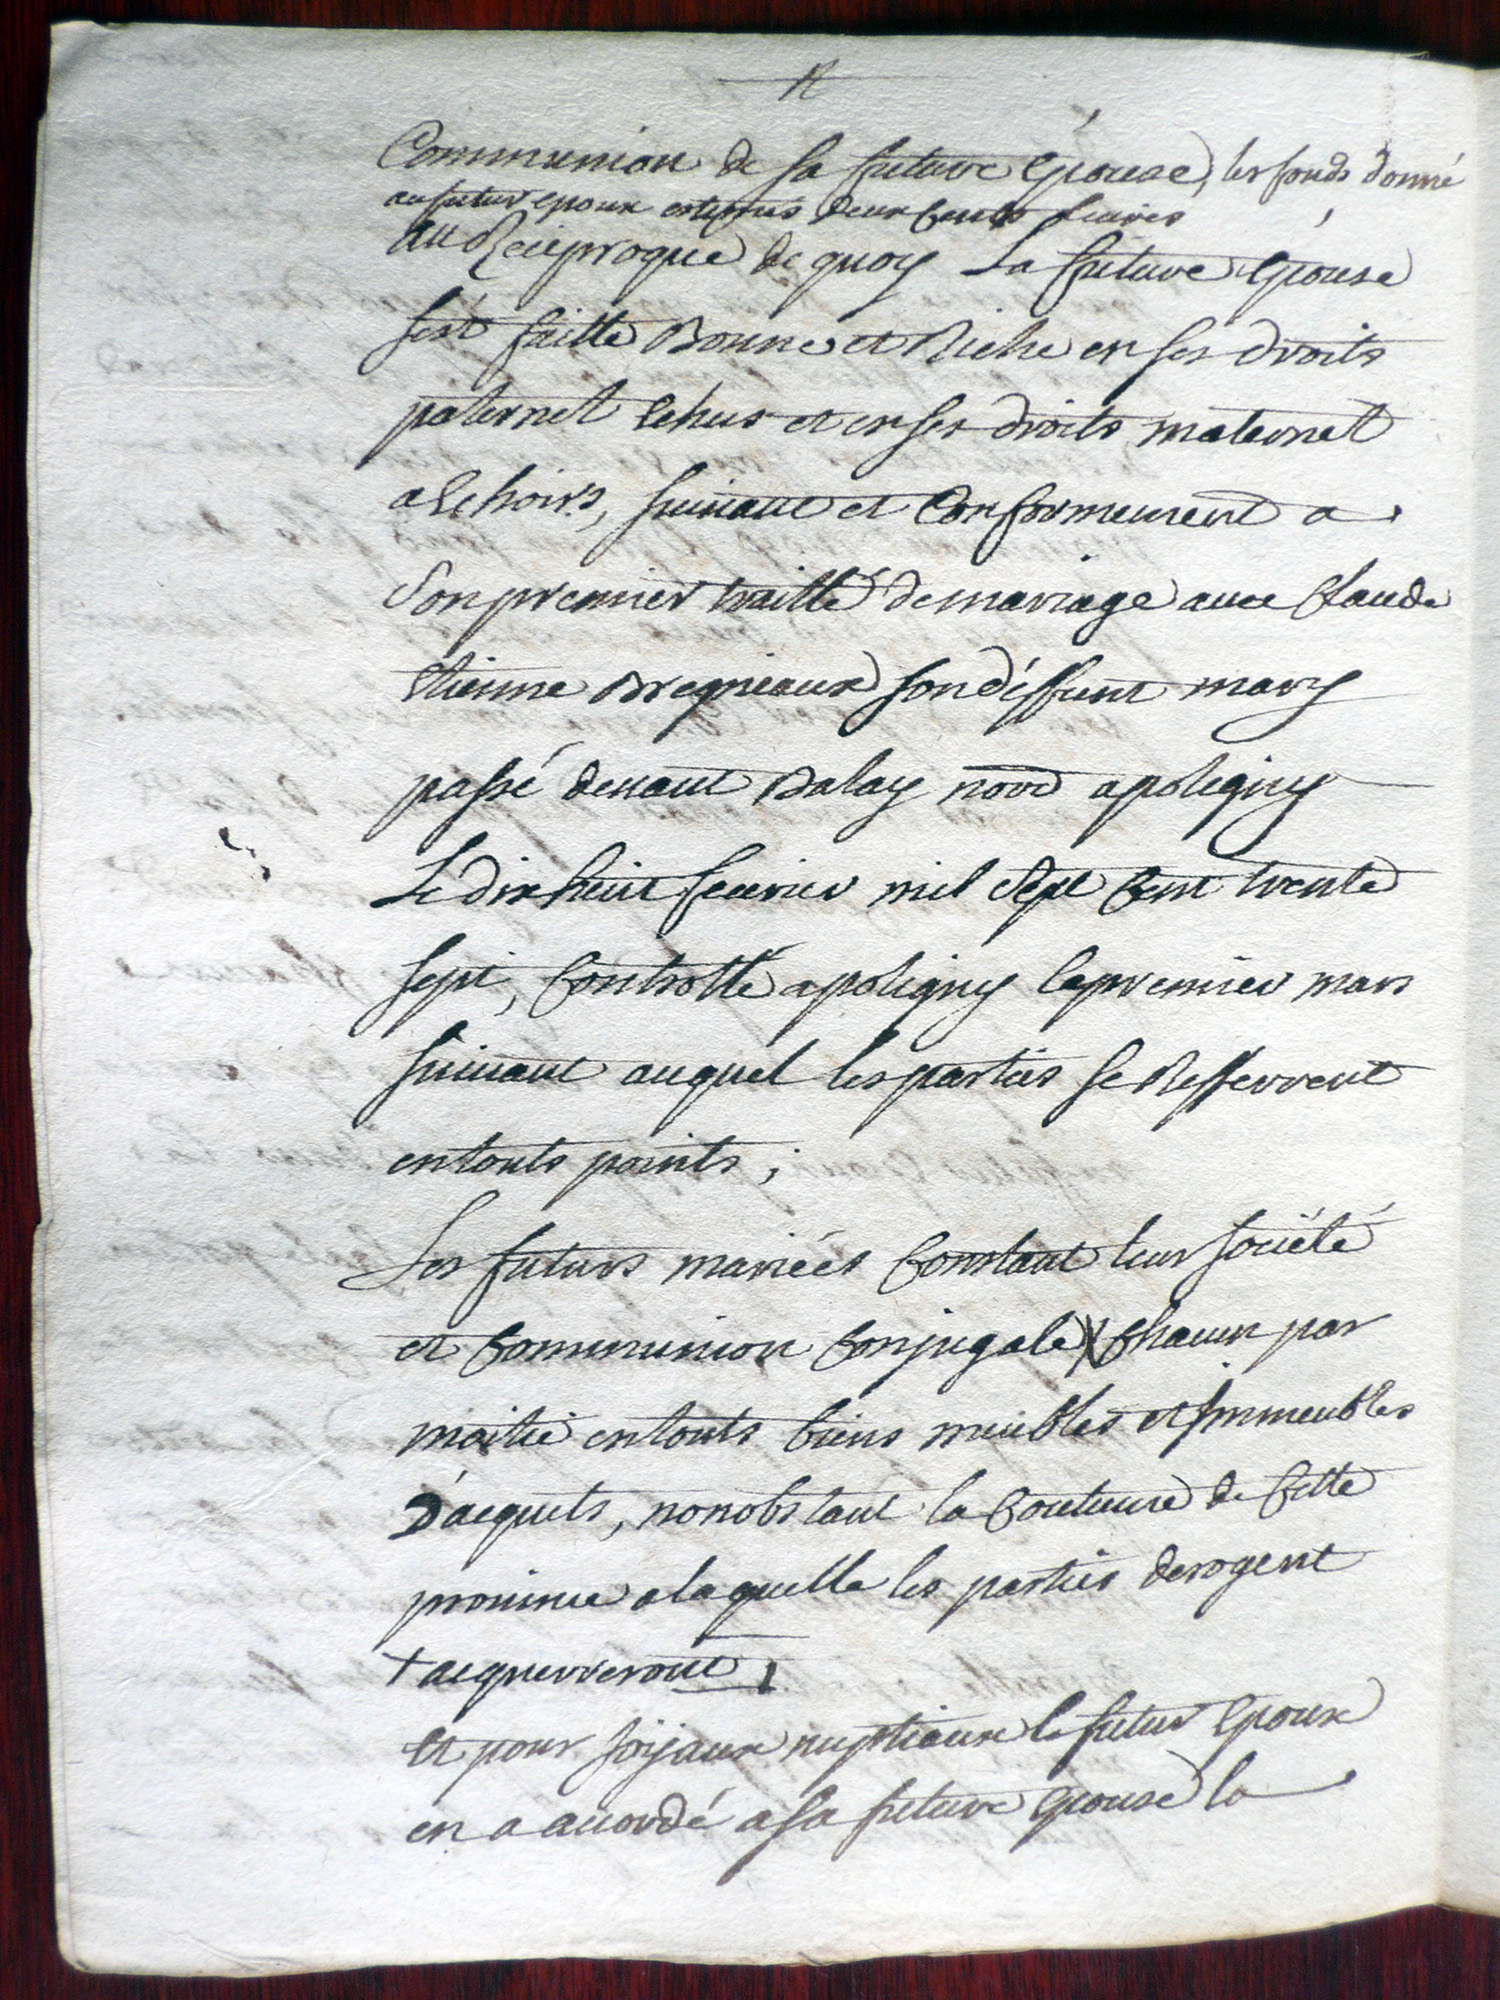 Communion de sa future Epouse, les fonds donné
au futur epoux estimés deux Cents livres
au Reciproque de quoy La future Epouse
s'est faitte Bonne et Riche en ses droits
paternel Echus et en ses droits maternel
a Echoirs, suivant et Conformement a
Son premier traitté de mariage avec Claude
Etienne son déffunt mary
passé devant Balay nore a poligny
Le dix huit fevrier mil Sept Cent trente
sept, Controllé a poligny le premier mars
suivant auquel les parties se Refferrent
en touts points;
Les futurs mariéés Constant leur société
et Communion Conjugale X Chacun par
moitié en touts biens meubles et Immeubles
D'acquets, nonobstant la Coutume de Cette
province a laquelle les parties derogent
+ acquerreront
Et pour Joijaux nuptiaux le futur Epoux
en a accordé a sa future Epouse la